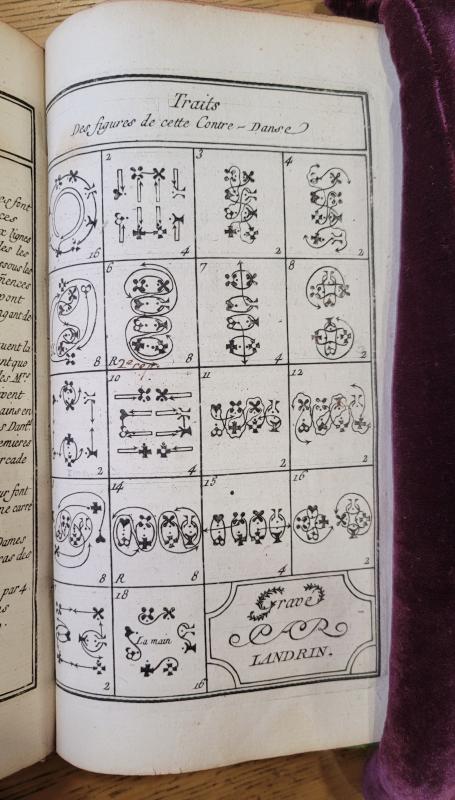 Traits
Des figures de cette Contre-Danse
16
2
4
3
2
4
2
8
6
R
8
7
4
8
2
2
10
4
11
2
12
2
8
14
R
8
15
4
16
2
2
18
La main
16
Gravé
PAR
LANDRIN.
es font
ces
x lignes
les les
ssous les
pont
gant de
uent la
nt que
les Mrs.
vent
ains en
s Damel
emieres
rcade
ur font
ne carré
Dames
ras des
par 4